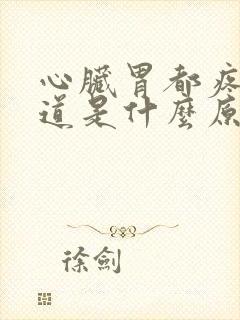 心臟胃都疼
道是什麼原
徐劍